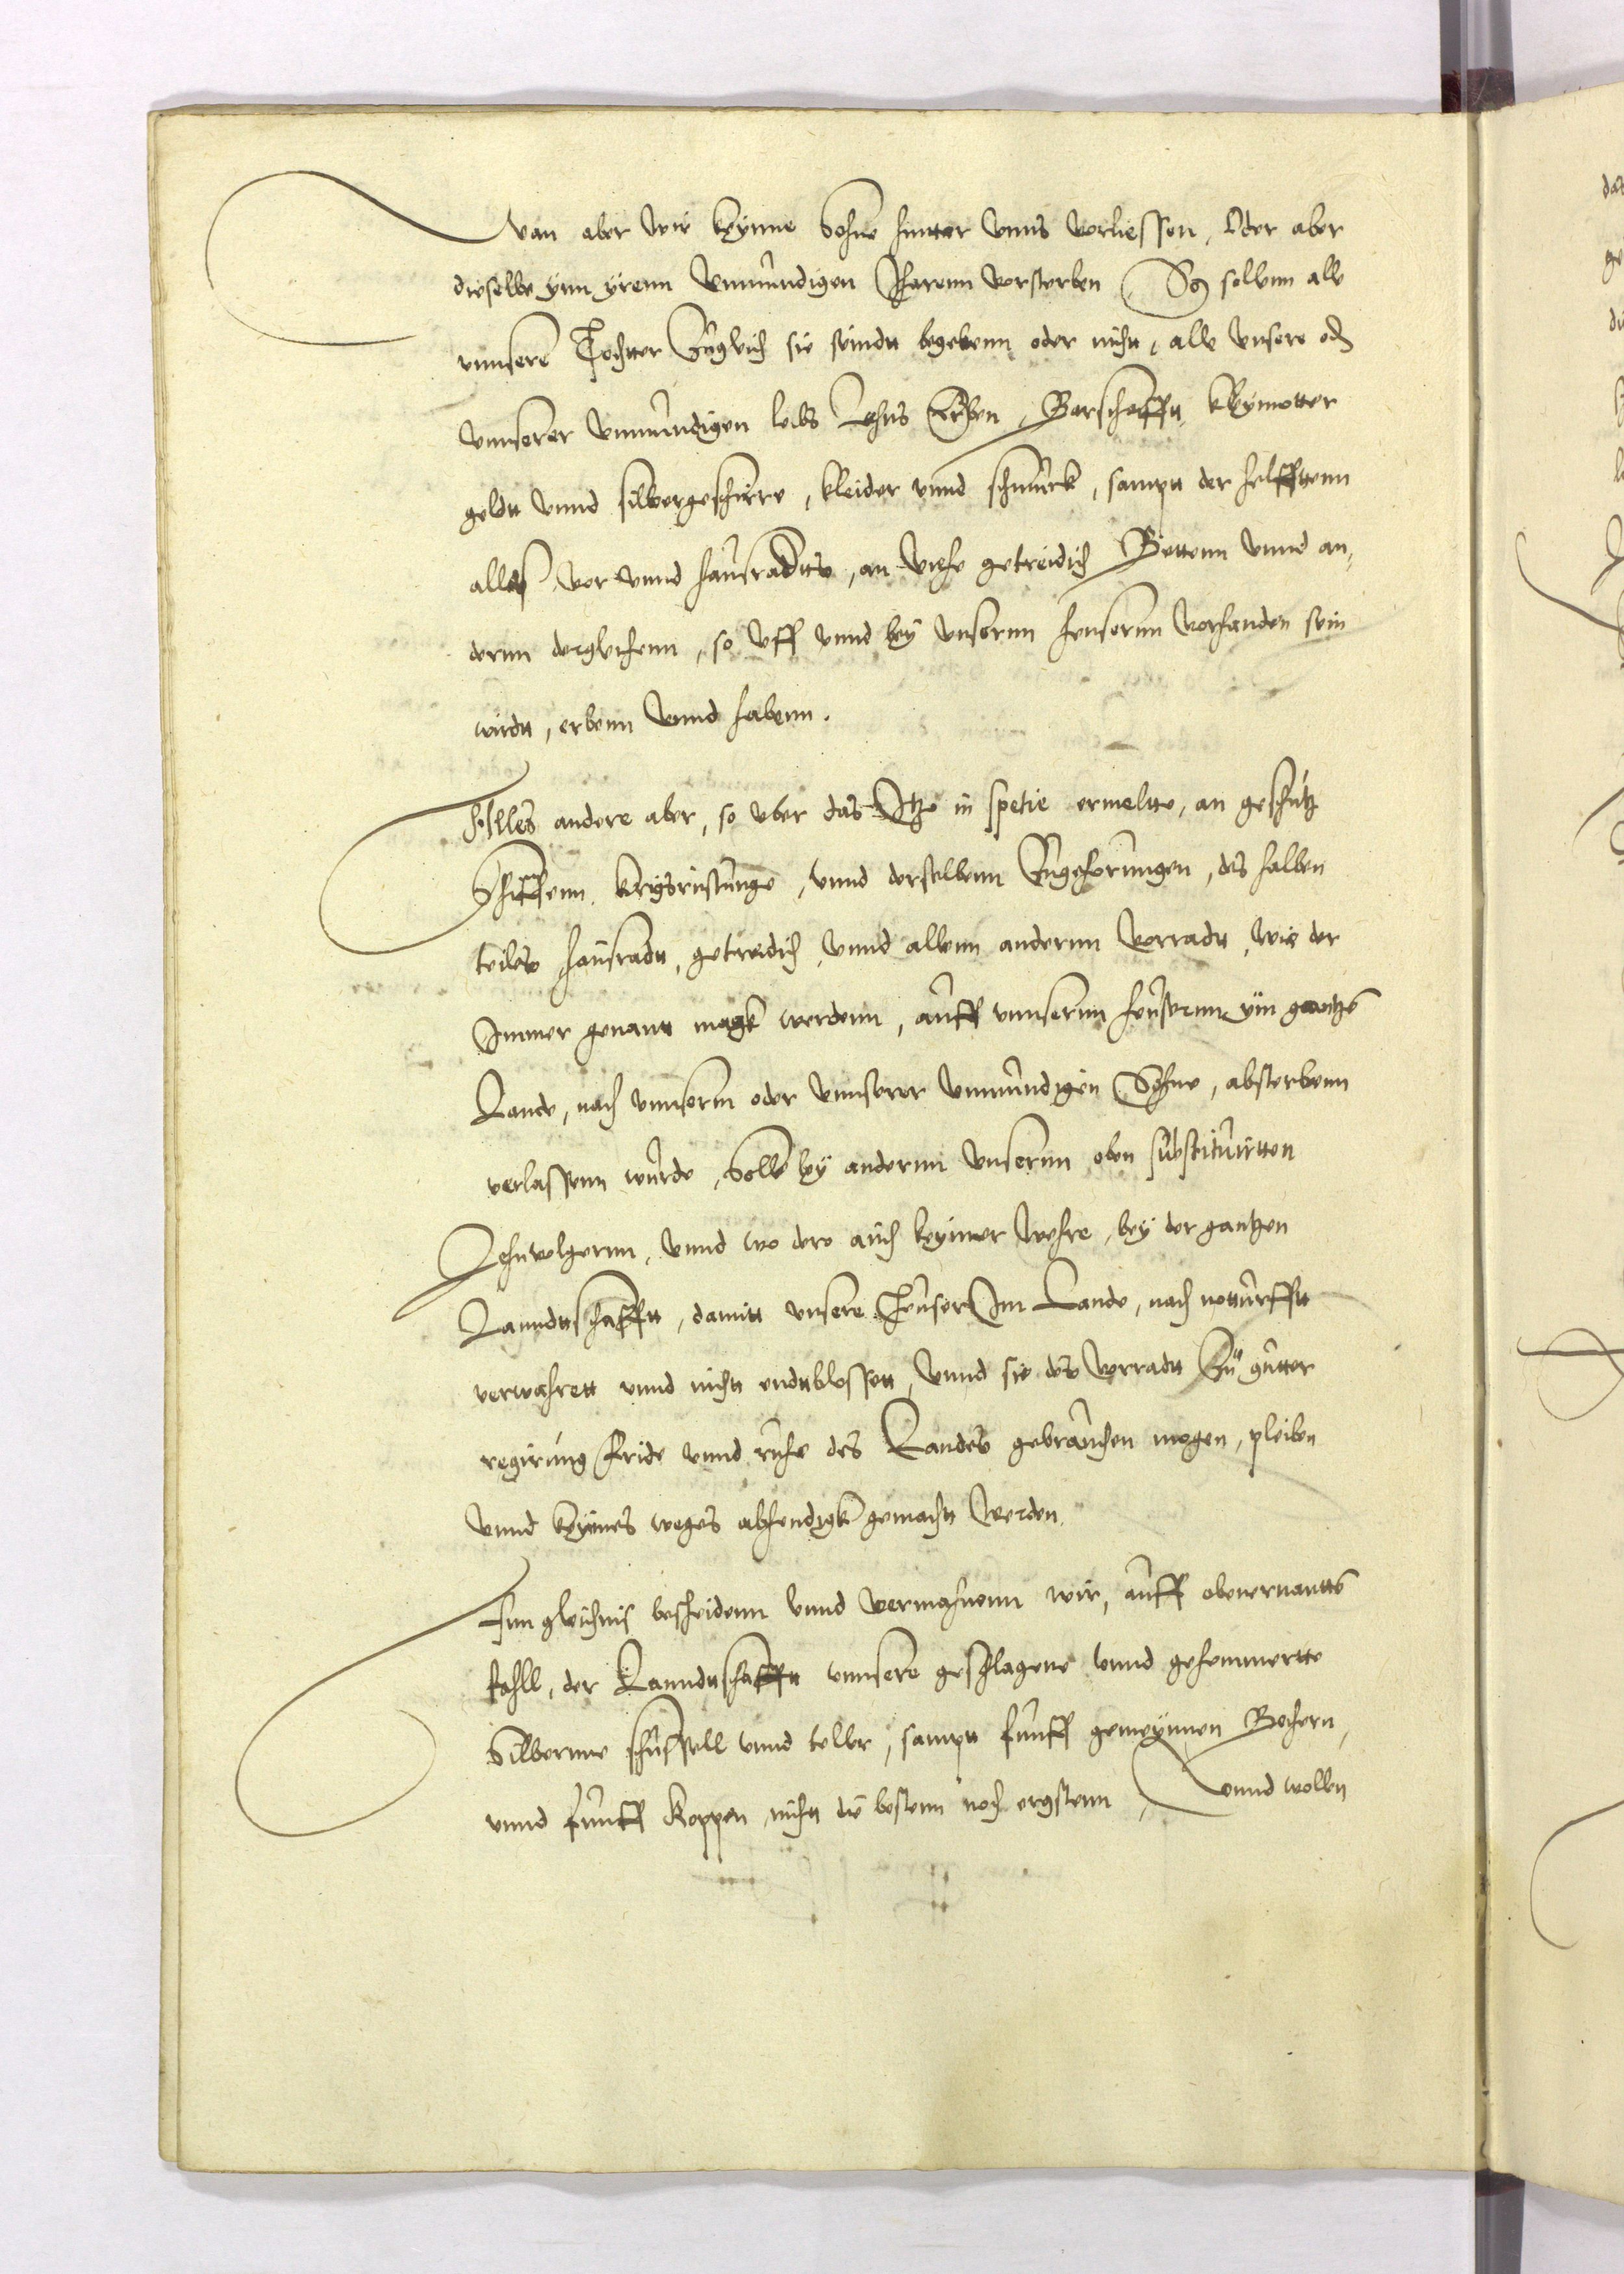 Wan aber wir keynne Sohne hintter vnns verliessen, Oder aber
dieselbe ynn yrenn Vnmundigen Jharenn versterben So sollenn alle
vnnsere Tochter Zugleich sie seindt begebenn oder nicht, alle vnsere oder
vnnserer vnmundigen leibs Lehns Erben, Barschafft, kleynotter
geldt vnnd silbergeschirre, kleider vnnd schmuck, sampt der helfftenn
alles vor vnnd hausradts, an viehe getreidich Bettenn vnnd an,
dernn dergleichenn, so vff vnnd bey vnsernn heusernn vorhanden sein
wirdt, erbenn vnnd habenn.
Alles andere aber, so vber das Itzo in spetie ermelte, an geschutz
Schiffenn, krigsrustunge, vnnd derselbenn Zugehorungen, des halben
teiles hausradt, getreidich, vnnd allenn andernn vorradt, wie der
Immer genant magk werdenn, auff vnnsernn heusernn ym gantze
Lande, nach vnnserm oder vnnserer vnmundigen Sohne, absterbenn
verlassenn wurde, Solle bey andernn vnsernn oben substituirtten
Lehnvolgernn, vnnd wo dere auch keyner wehre, bey der gantzen
Lanndtschafft, damit vnsere Heuser Im Lande, nach notturfft
verwahrett vnnd nicht endtblossett, vnnd sie des vorradt Zu gutter
regirung fride vnnd ruhe des Landes gebrauchen mogen, pleiben
vnnd keynes weges abhendigk gemacht werden.
Inn gleichnis bescheidenn vnnd vermachenn wir, auff obenernantte
fahll, der Lanndtschafft vnnsere geschlagene vnnd gehemmertte
Silbernne schussell vnnd teller, sampt funff gemeynnen Bechern,
vnnd funff Koppen nicht die bestenn noch ergstenn, Vnnd wollen